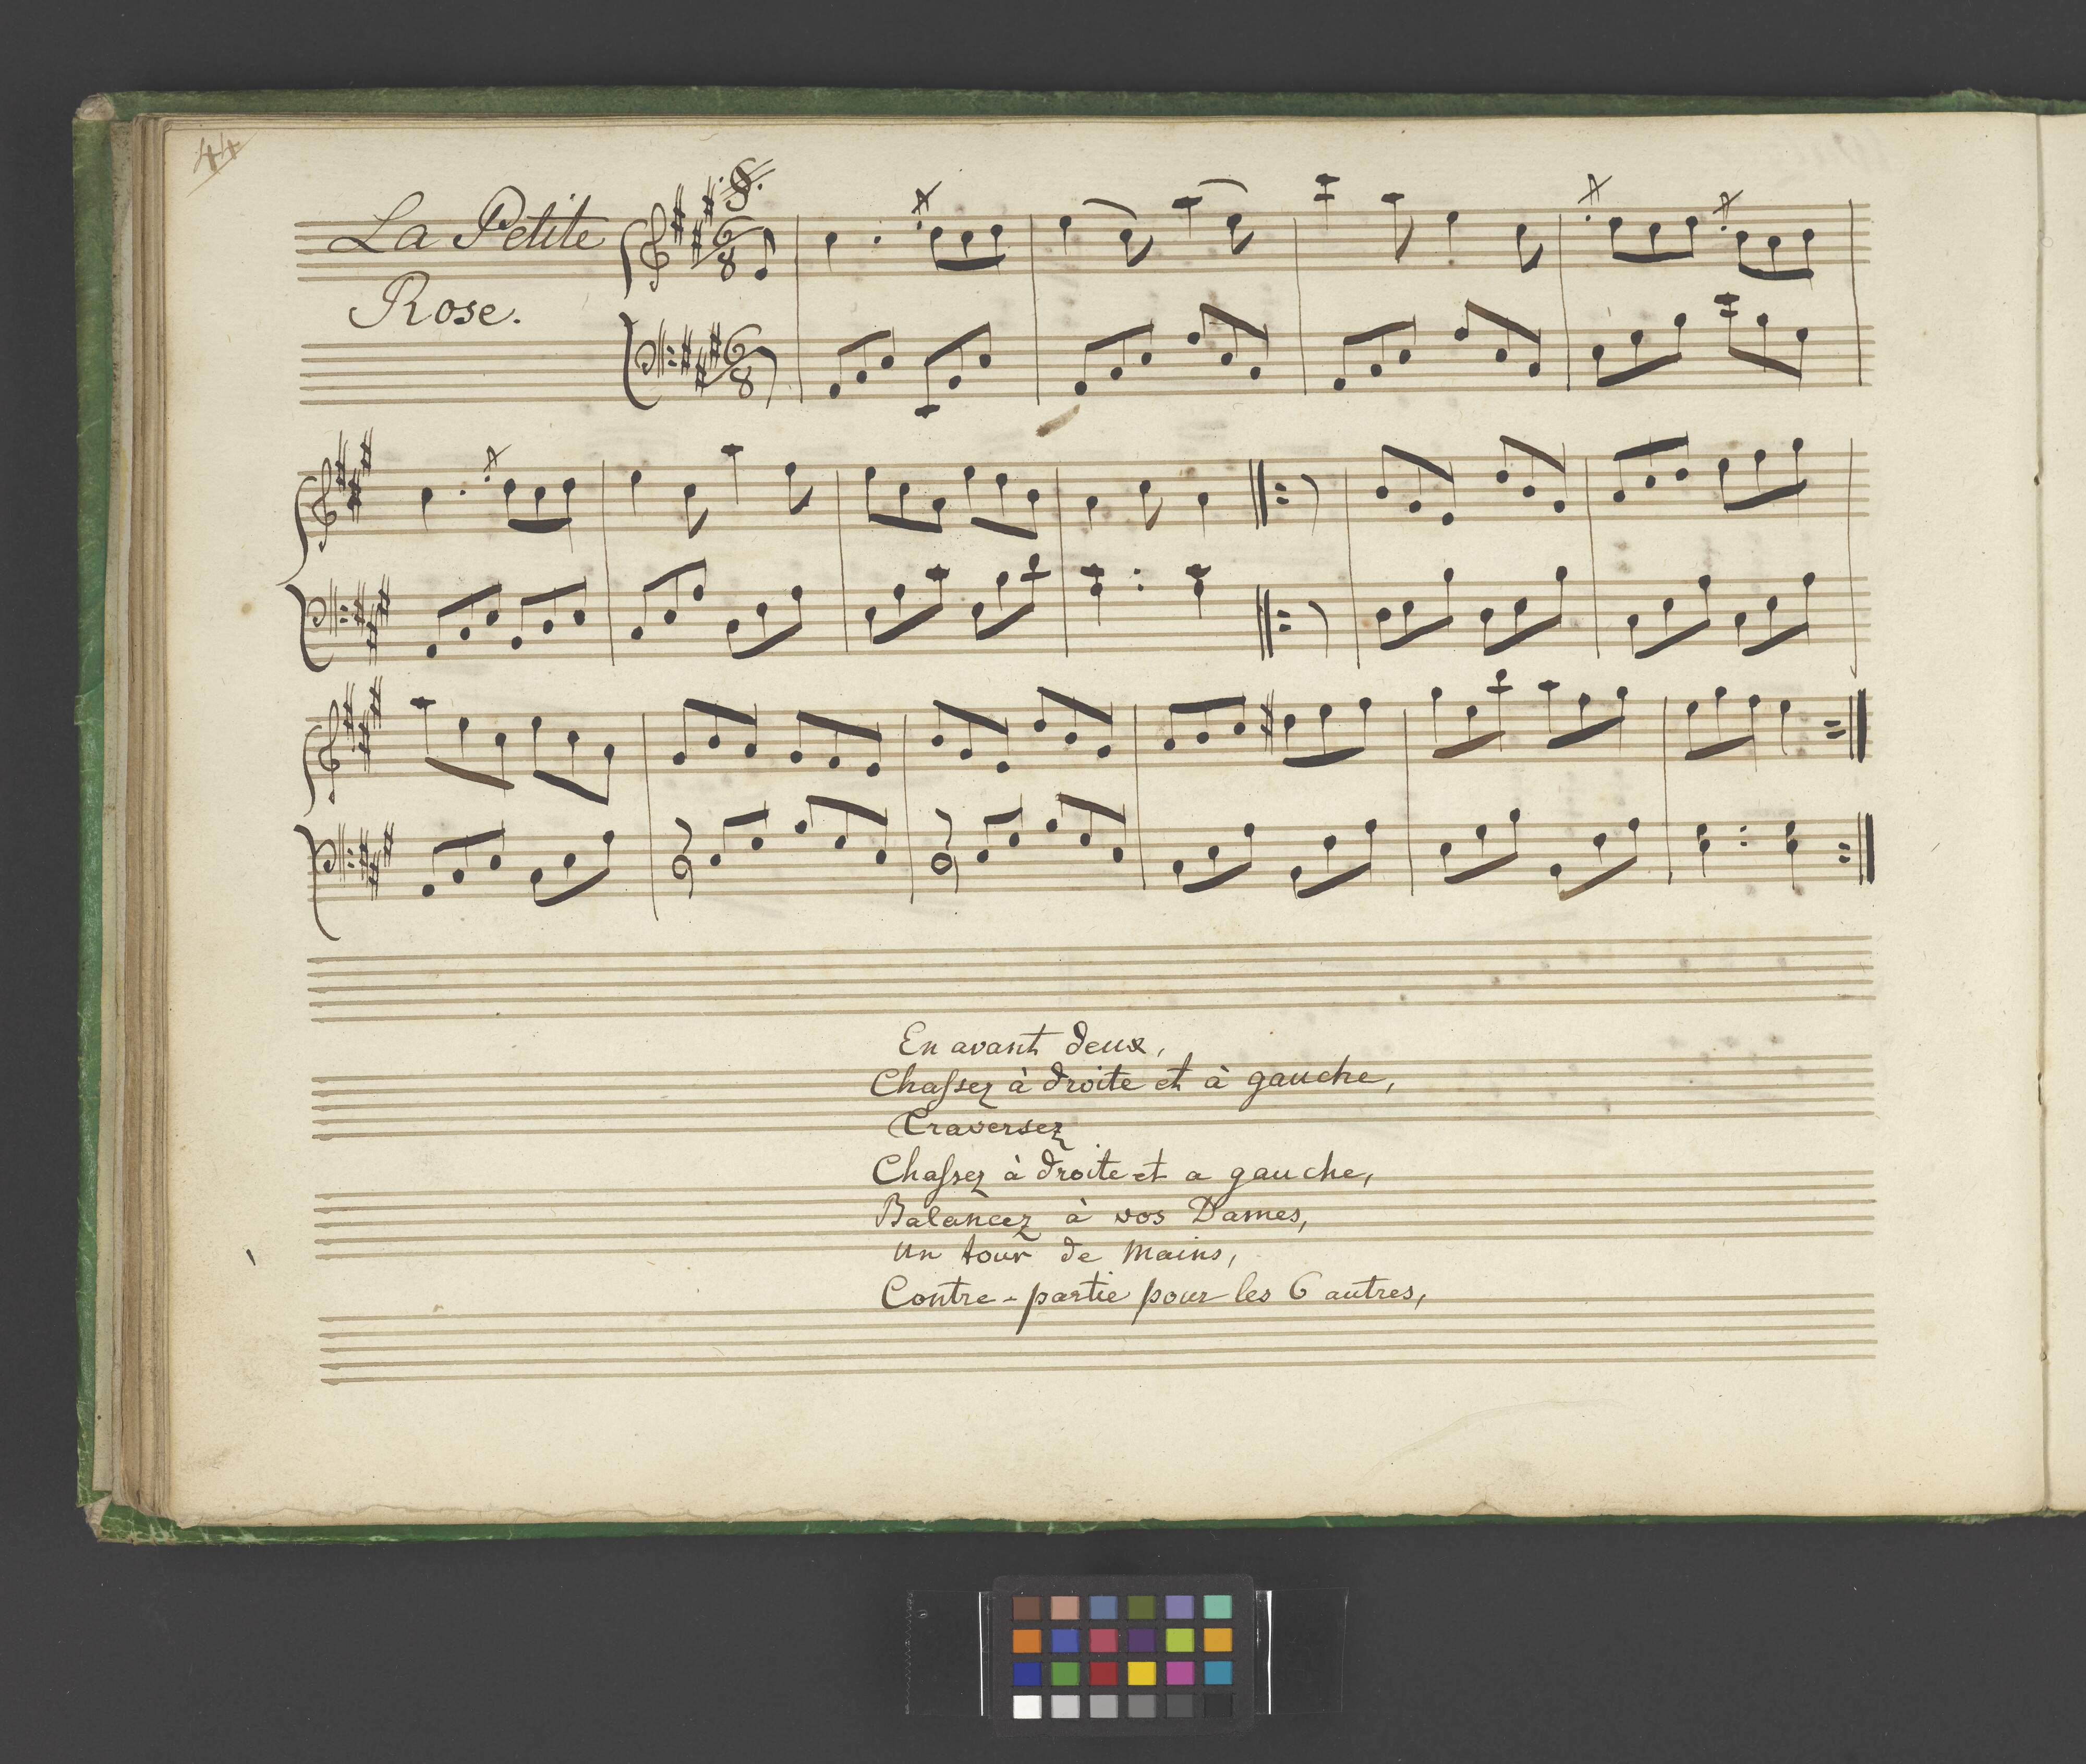 44
La Petite
Rose.
6
8
6
8
En avant deux,
Chaſsez à droite et à gauche,
Traversez
Chaſsez à droite et a gauche,
Balancez à vos Dames,
un tour de mains,
Contre-partie pour les 6 autres,